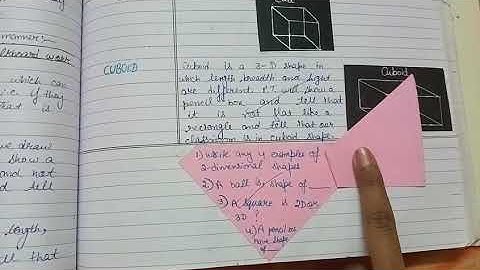 manner:
which can
if they
that is
we draw
show a
and not
tell
length,
tell that
CUBOID
Cuboid is a 3-D shape in
which length, breadth and hight
are different. P.T will show a
pencil box and tell that
it is not flat like a
rectangle and tell that our
classroom is in cuboid shape.
Cuboid
1) Write any 4 examples of
2-dimensional shapes
2) A ball is shape of
3) A square is 2D or
3D ?
4) A pencil box
have shape
of